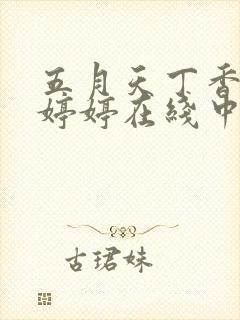 五月天丁香
婷婷在线中
古珺妹